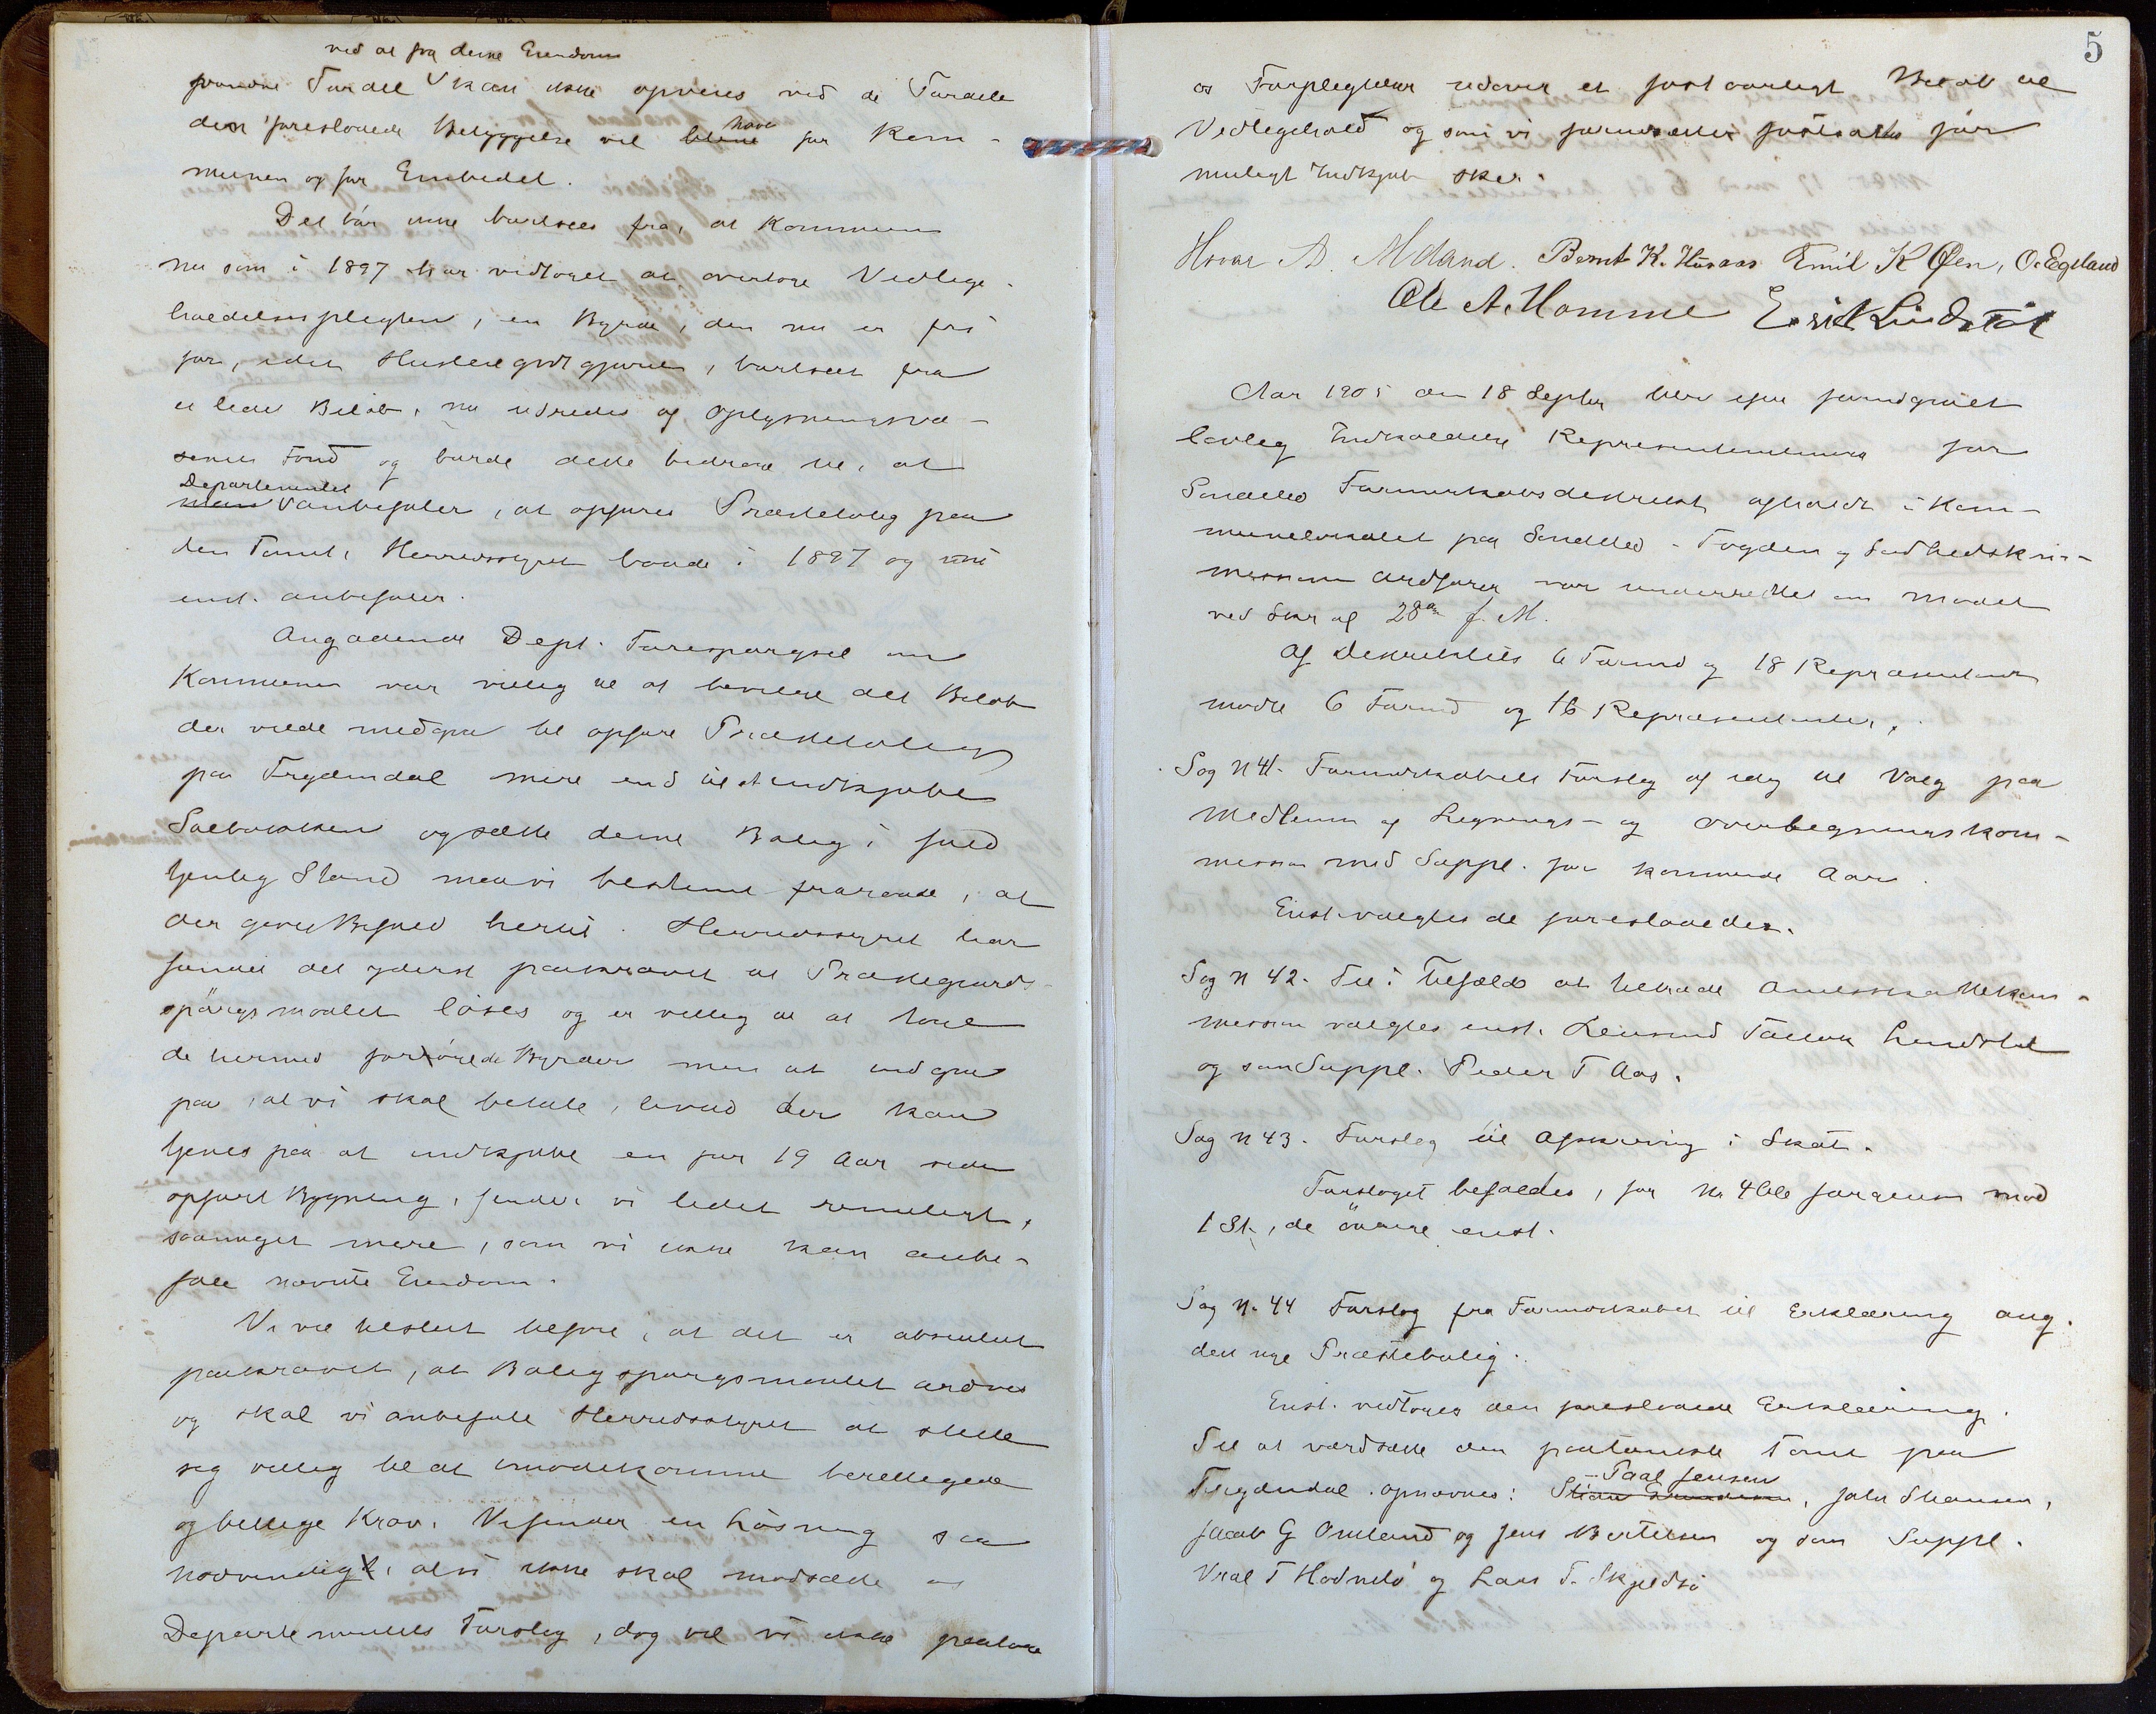 ved at fra denne Eiendom
fremdre Fordel kan ikke opveies ved de Fordele
den foreslaaede Bebyggelse vil blive have for Kom-
munen og for Embedet.
Det bør ikke bortsees fra, at Kommunen
nu som i 1897 har vedtaget at overtage Vedlige-
holdelsespligten, en Byrde, den nu er fri
for, idet Huslejegodtgjørelse, bortseet fra
et lidet Beløb, nu udredes af Oplysningsvæ-
senets Fond og burde dette bidrage til, at
Departementet
man anbefaler, at opføres Præstebolig paa
den Tomt, Herredsstyret baade i 1897 og nu
enst. anbefaler.
Angaaende Dept. Forespørgsel om
Kommunen var villig til at bevilge det Beløb
der vilde medgaa til opføre Præstebolig
paa Frydendal mere end til at indkjøbe
Solbakken og sætte denne Bolig i fuld
tjenlig Stand maa vi bestemt fraraade, at
der gives Bifald hertil. Herredsstyret har
fundet det yderst paakrævet at Præstegaards-
spørgsmaalet løses og er villig til at bære
de hermed forbundne Byrder men at indgaa
paa, at vi skal betale, hvad der kan
tjenes paa at indkjøbe en for 19 Aar siden
opført Bygning, finder vi lidet rimeligt,
saameget mere, som vi ikke kan anbe-
fale nævnte Eiendom.
Vi vil tilslut tilføie, at det er absolut
paakrævet, at Boligspørgsmaalet ordnes
og skal vi anbefale Herredsstyret at stille
sig villig til at imødekomme berettigede
og billige Krav. Vi finder en Løsning saa
nødvendig, at vi ikke skal modsætte os
Departementets Forslag, dog vil vi ikke paatage
5
os Forpligtelser udover et fast aarligt Beløb til
Vedligehold og som vi forudsætter fastsattes før
muligt Indkjøb sker.
Hovar A. Moland. Bernt K. Husaas Emil K Øen, O. Egeland
Ole A. Homme Eirik Lindstøl
Aar 1905 den 18 Septbr blev efter forudgaaet
lovlig Indkaldelse Repræsentantmøde for
Søndeled Formandskabsdistrikt afholdt i Kom-
munelokalet paa Søndeled. Fogden og Sundhedskom-
missionens Ordfører var underrettet om Mødet
ved Skr af 28de f. M.
Af Distriktets 6 Formd og 18 Repræsentanter
mødte 6 Formd og 16 Repræsentanter.
Sag N 41. Formandskabets Forslag af idag til Valg paa
Medlemmer af Lignings- og Overligningskom-
mission med Suppl. for kommende Aar.
Enst. valgtes de foreslaaede.
Sag N 42. Til i Tilfælde at tiltræde Amtsskattekom-
mission valgtes enst. Lensmd Tallak Lindstøl
og som Suppl. Peder T Aas.
Sag N 43. Forslag til Afskrivning i Skat.
Forslaget befaldes, for No 4 Ole Jørgensen mod
1 St, de øvrige enst.
Sag N. 44 Forslag fra Formandskabet til Erklæring ang.
den nye Præstebolig.
Enst. vedtoges den foreslaaede Erklæring.
Til at værdsætte den paatænkte Tomt paa
Frydendal opnævnes: Paal Jensen, John Shansen,
Jacob G Omland og Jens Bertelsen og som Suppl.
Vraal T Hødnebø og Lars T. Skjeldsø